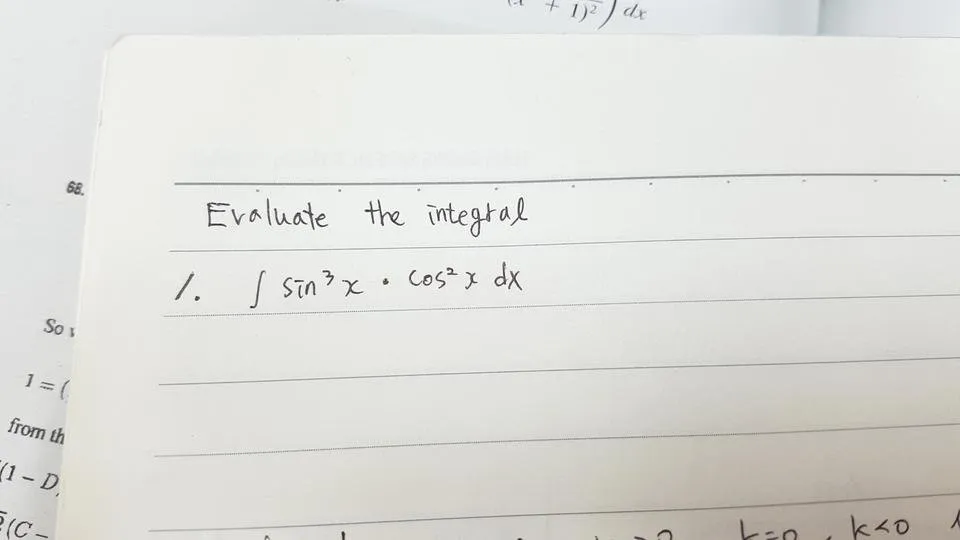 + 1)²) dx
68.
Evaluate the integral
1. ∫ sin³x · cos²x dx
So
1 = (
from th
(1 – D
(C –
k=0, k<0